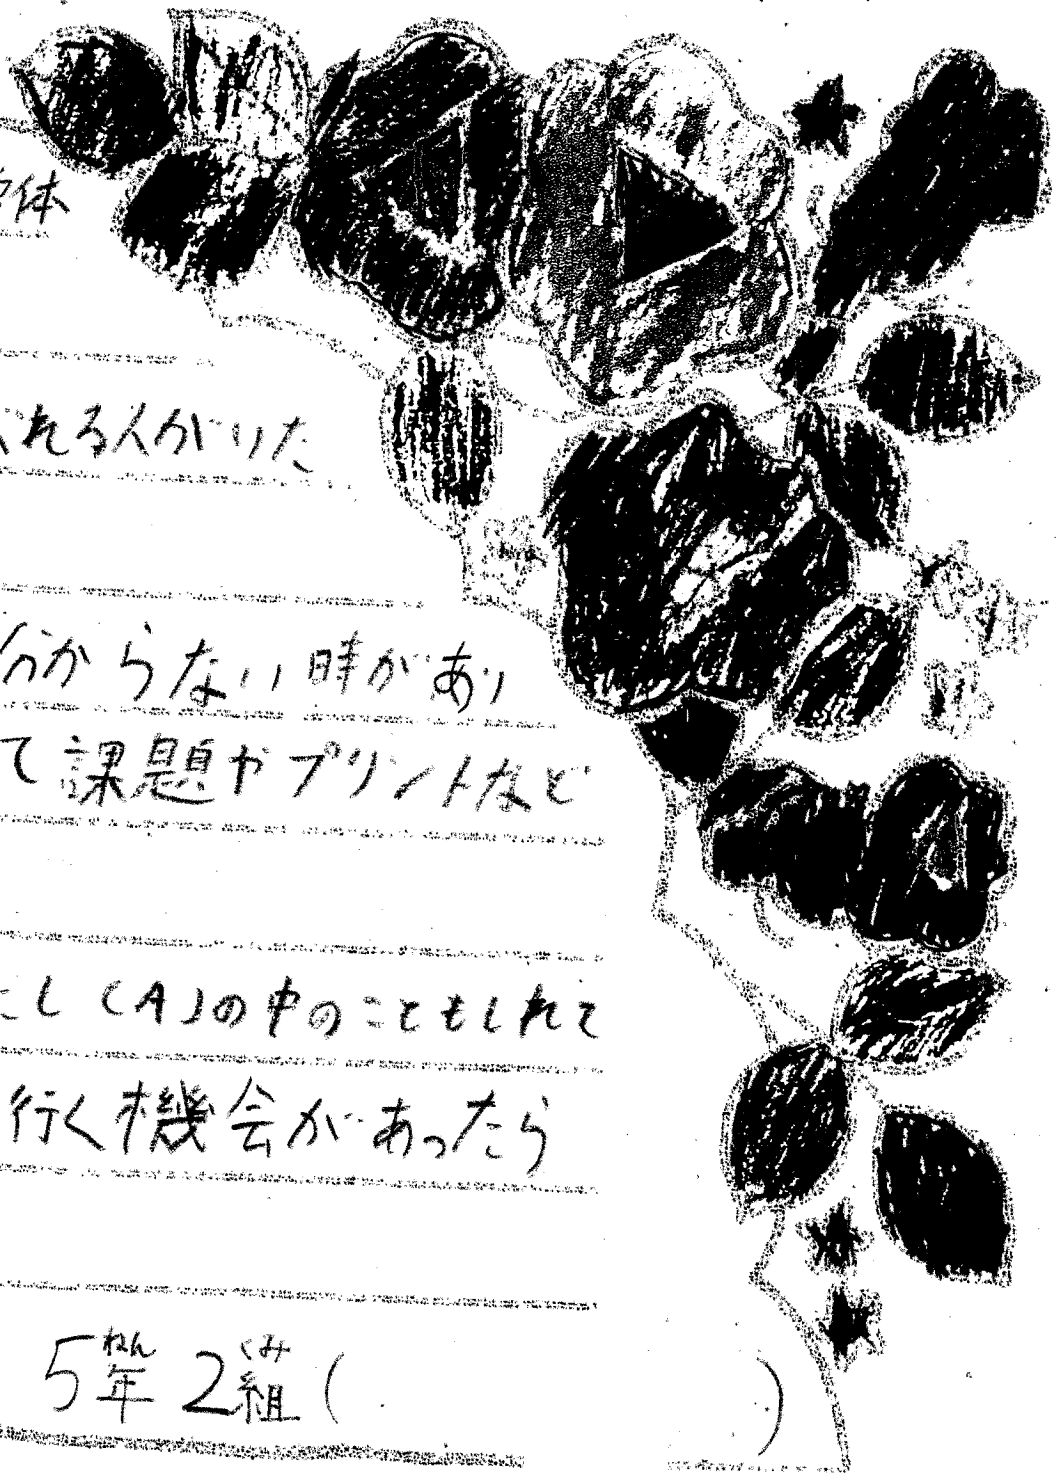 体
れる人がいた
分からない時があり
て課題やプリントなど
し(A)の中のこともしれて
行く機会があったら
5年2組( )
ねん くみ